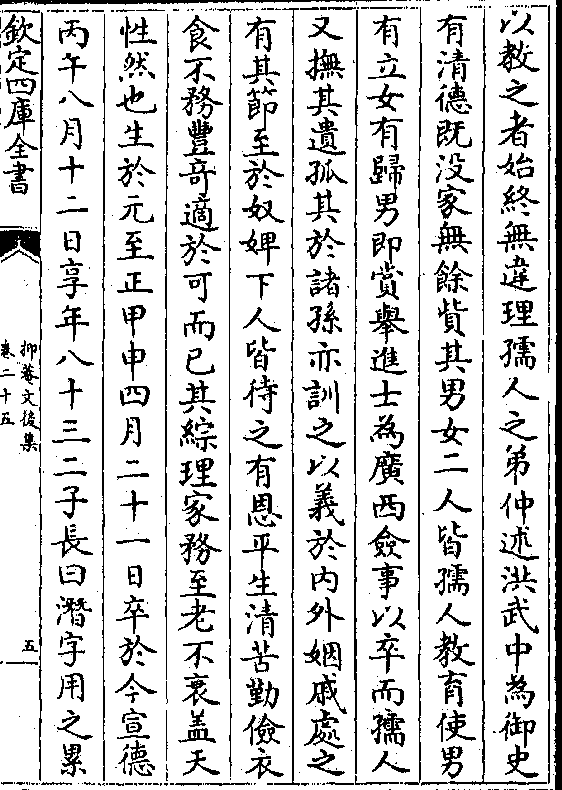 以教之者始終無違理孺人之弟仲述洪武中為御史
有清德既没家無餘貲其男女二人皆孺人教育使男
有立女有歸男即賞舉進士為廣西僉事以卒而孺人
又撫其遺孤其於諸孫亦訓之以義於内外姻戚處之
有其節至於奴婢下人皆待之有恩平生清苦勤儉衣
食不務豐竒適於可而已其綜理家務至老不衰盖天
性然也生於元至正甲申四月二十一日卒於今宣德
丙午八月十二日享年八十三二子長曰濳字用之累
欽定四庫全書
抑菴文後集
卷二十五
五